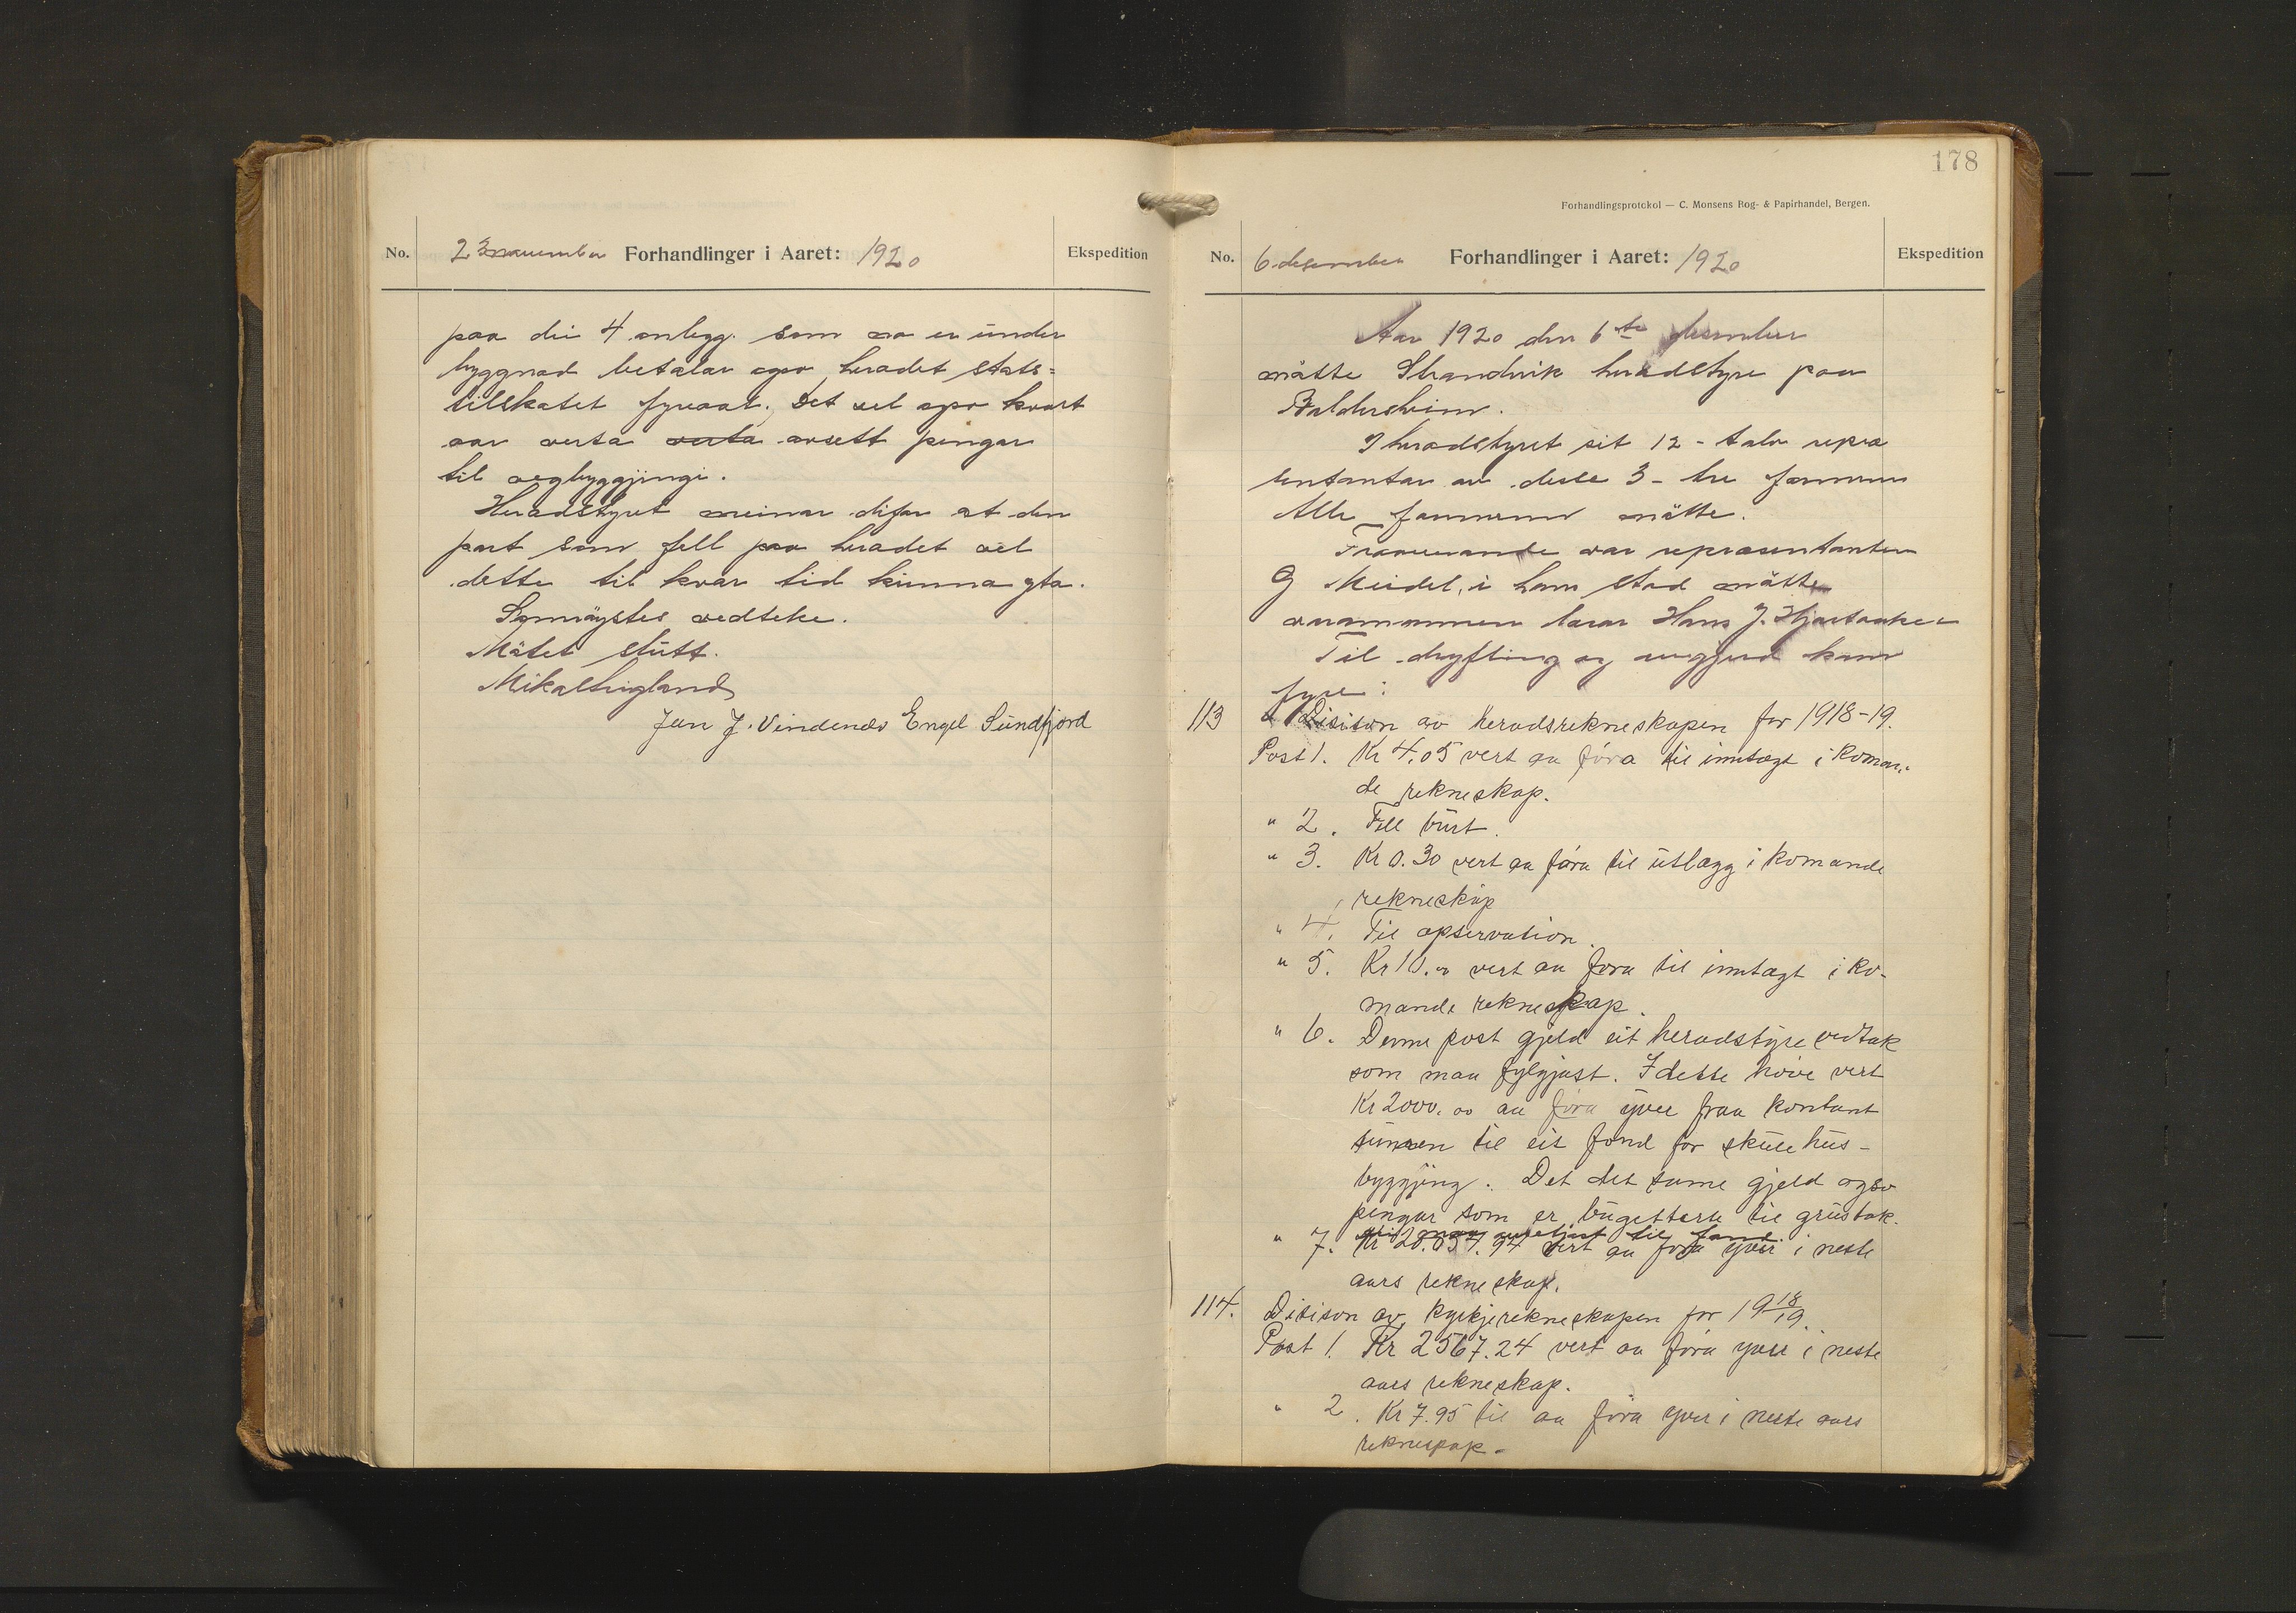 No. 23 november Forhandlinger i Aaret: 1920 Ekspedition
paa dei 4 anlegg. som no er under
byggnad betalar ogso heradet stats=
tilskotet fyreaat. Det vil ogso kvart
aar verta verta avsett pengar
til vegbyggjingi.
Heradstyret meinar difor at den
part som fell paa heradet vil
dette til kvar tid kunna yta.
Samröystes vedteke.
Mötet slutt.
Mikal Lugland
Jan J. Vindenes Engel Sundfjord
178
Forhandlingsprotokol — C. Monsens Bog- & Papirhandel, Bergen.
No. 6. desember Forhandlinger i Aaret: 1920 Ekspedition
Aar 1920 den 6te desember
mötte Strandvik heradstyre paa
Baldersheim.
I heradstyret sit 12 - tolv repre
sentantar av desse 3 - tre formenn
Alle formenn mötte.
Fraaverande var representanten
G Meidel, i hans stad mötte
varamannen lærar Hans J. Hjartaaker
Til dryfting og avgjerd kom
fyre:
113 Disison av heradsrekneskapen for 1918-19.
Post 1. Kr 4.05 vert aa föra til inntægt i koman-
de rekneskap.
" 2. Fell burt.
" 3. Kr 0.30 vert aa föra til utlægg i komande
rekneskap
" 4. Til opservation.
" 5. Kr 10.00 vert aa föra til inntægt i ko-
mande rekneskap.
" 6. Denne post gjeld eit heradstyrevedtak
som maa fylgjast. I dette höve vert
Kr 2000.00 aa föra yver fraa kontant
sumen til eit fond for skulehus-
byggjing. Det det same gjeld ogso
pengar som er bugetterte til grustak.
" 7. Kr 20.657.94 vert aa föra yver i neste
aars rekneskap.
114. Disison av kyrkjerekneskapen for 1918/19.
Post 1. Kr 2567.24 vert aa föra yver i neste
aars rekneskap.
" 2. Kr 7.95 til aa föra yver i neste aars
rekneskap.